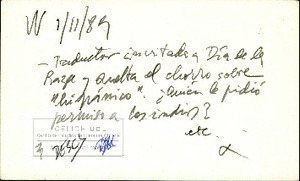 W 1/11/89
— Traductor invitado a Día de la
Raza y suelta el chorro sobre
"hispánico". ¿Quién le pidió
permiso a los indios?
etc
CELICH UC